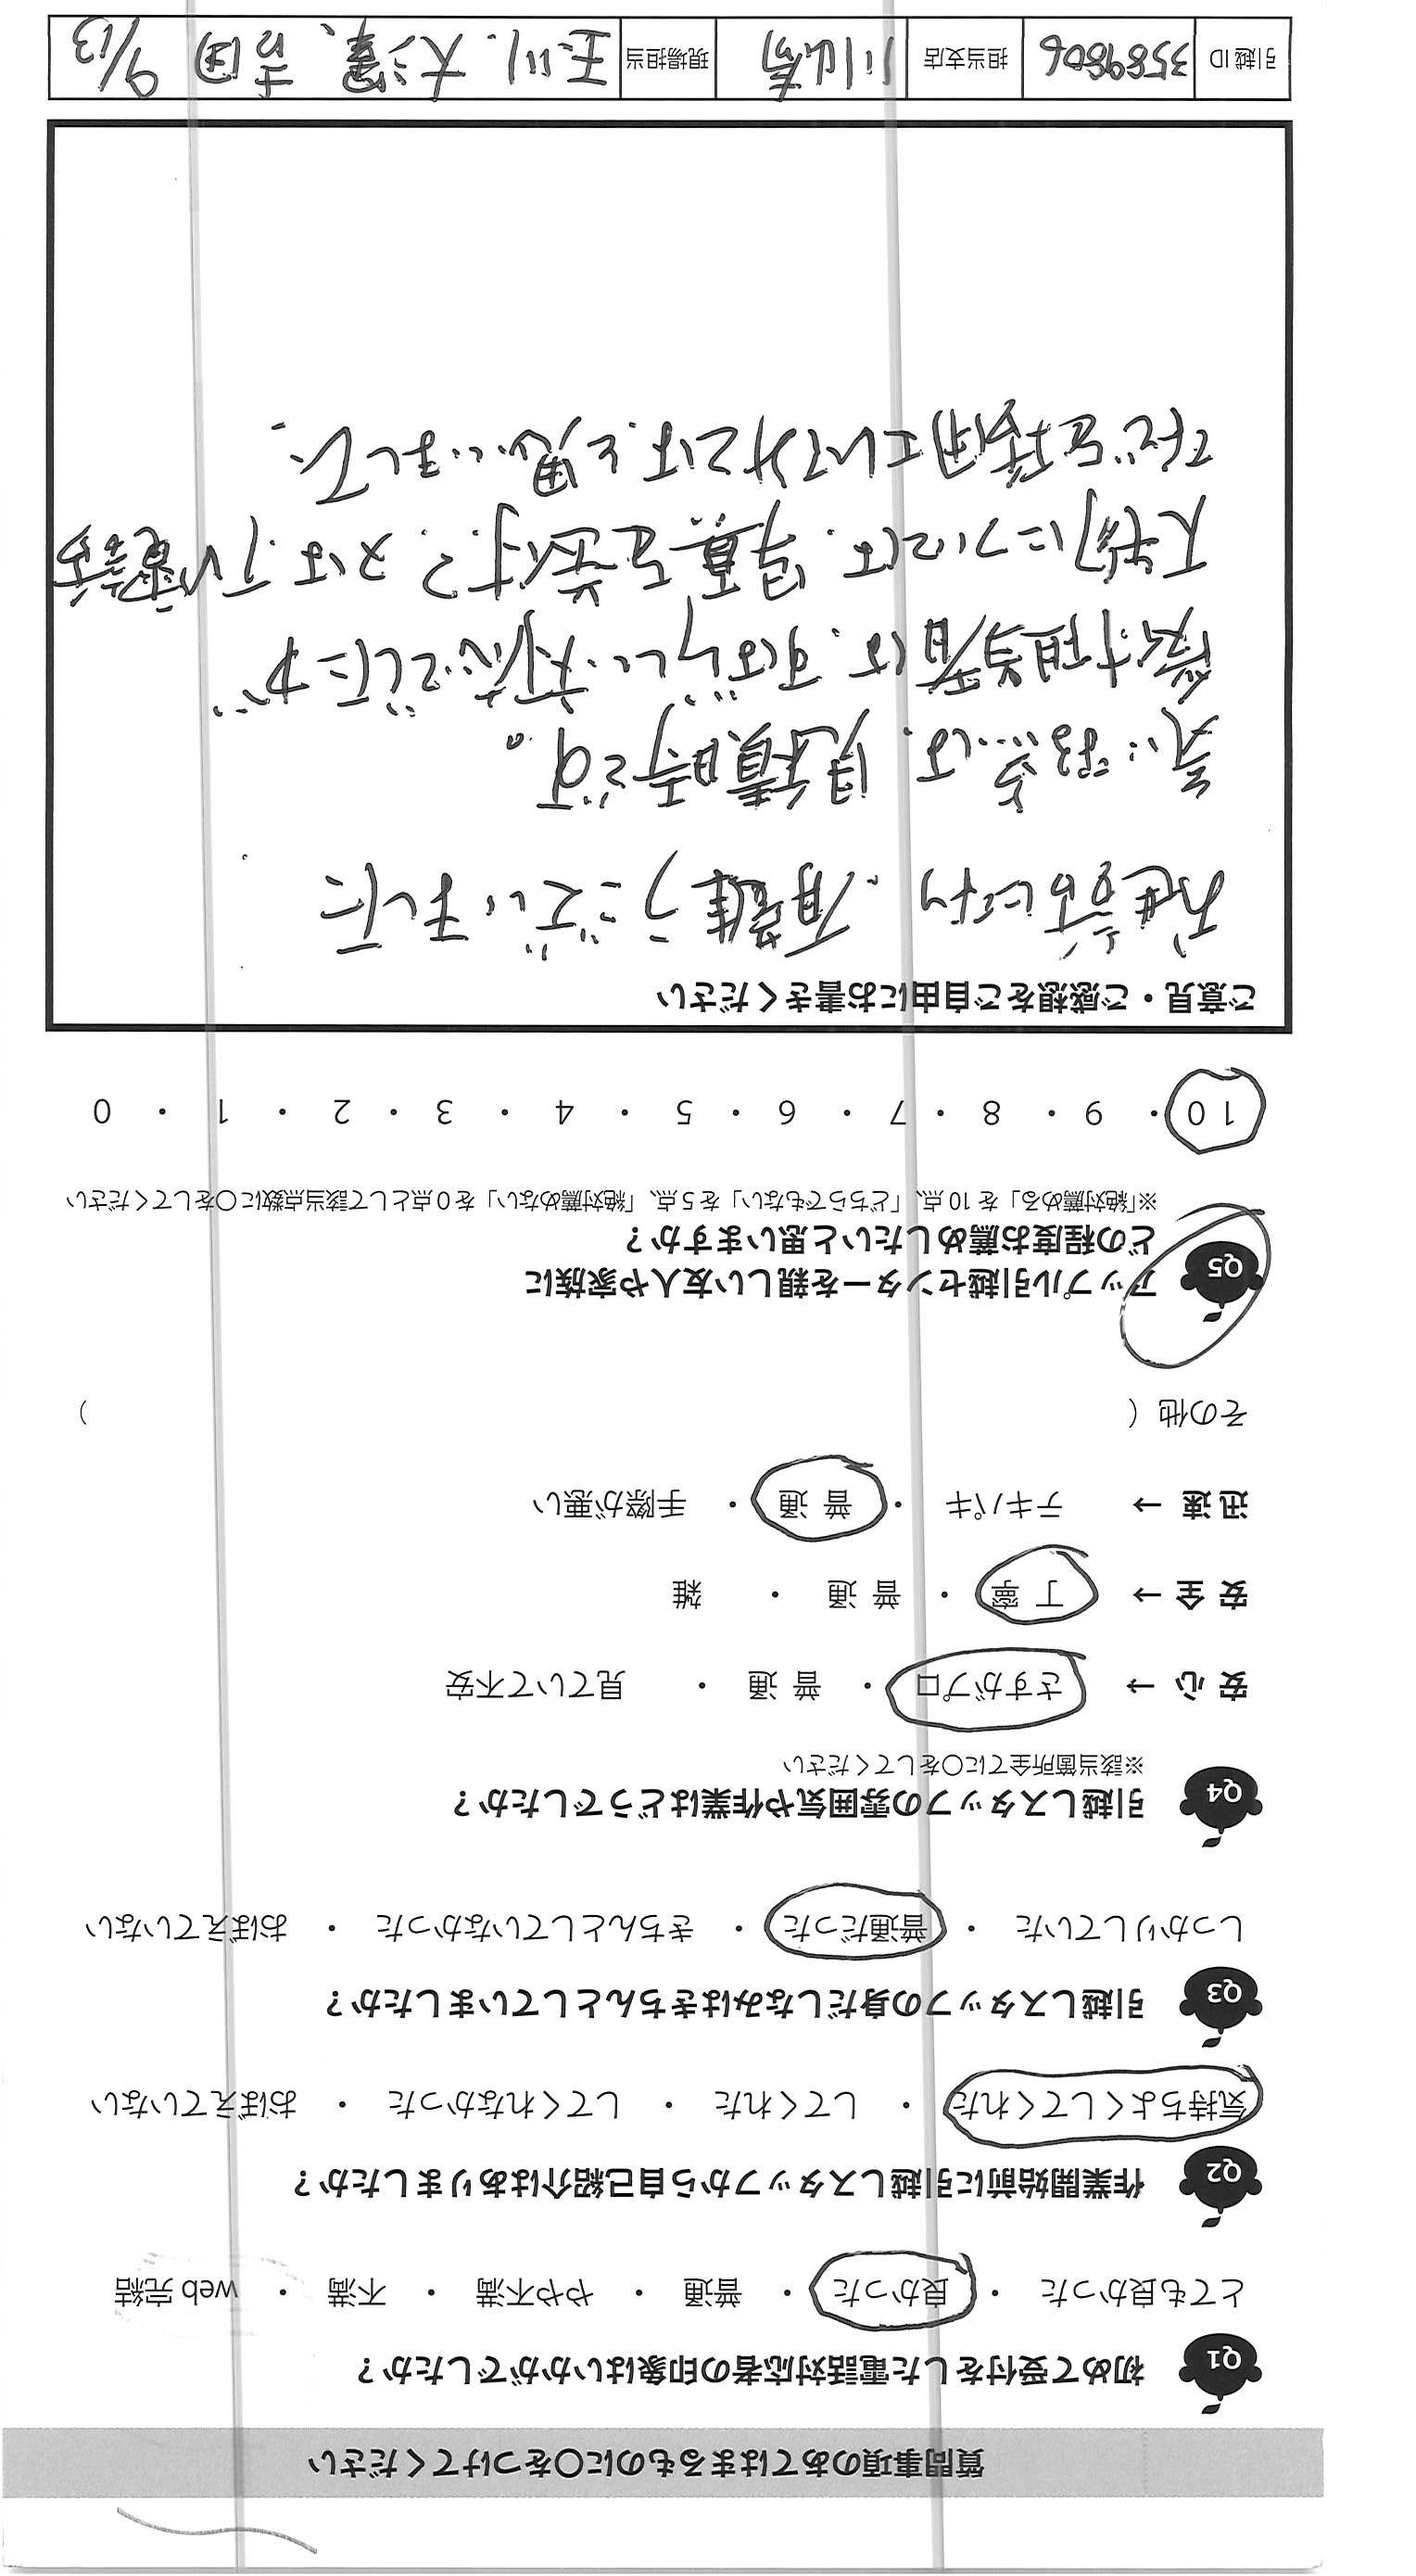 質問事項のあてはまるものに〇をつけてください
Q1 初めて受付をした電話対応者の印象はいかがでしたか？
とても良かった ・ 良かった ・ 普通 ・ やや不満 ・ 不満 ・ web 完結
Q2 作業開始前に引越しスタッフから自己紹介はありましたか？
気持ちよくしてくれた ・ してくれた ・ してくれなかった ・ おぼえていない
Q3 引越しスタッフの身だしなみはきちんとしていましたか？
しっかりしていた ・ 普通だった ・ きちんとしていなかった ・ おぼえていない
Q4 引越しスタッフの雰囲気や作業はどうでしたか？
※該当箇所全てに〇をしてください
安 心 → さすがプロ ・ 普 通 ・ 見ていて不安
安 全 → 丁 寧 ・ 普 通 ・ 雑
迅 速 → テキパキ ・ 普 通 ・ 手際が悪い
その他（ ）
Q5 アップル引越センターを親しい友人や家族に
どの程度お薦めしたいと思いますか？
※「絶対薦める」を 10 点、「どちらでもない」を 5 点、「絶対薦めない」を 0 点として該当点数に〇をしてください
10 ・ 9 ・ 8 ・ 7 ・ 6 ・ 5 ・ 4 ・ 3 ・ 2 ・ 1 ・ 0
ご意見・ご感想をご自由にお書きください
有難うございました
は、見積時です。
担当者は、すばらしい対応でしたが
大物については、写真を送付？又は、TV電話
などを活用してみてはと思いました、
引越 ID 35898806 担当支店 川崎 現場担当 玉川、大澤、吉田 9/13